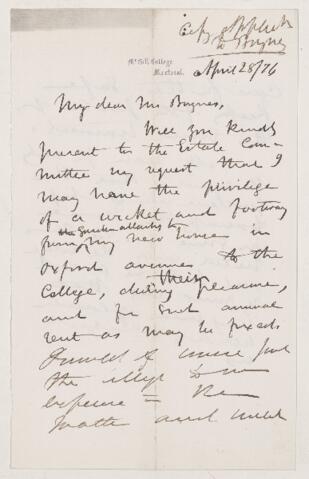 Copy
to Baynes
McGill College
Montreal.
April 28/76
My dear Mr Baynes,
Will you kindly
present to the Estate Com-
mittee my request that I
may have the privilege
of a wicket and footway
the Garden attached to
from my new house in
Oxford avenue to the
College, during their pleasure,
and for such annual
rent as may be fixed.
I would of course put
the
expense =
matter and